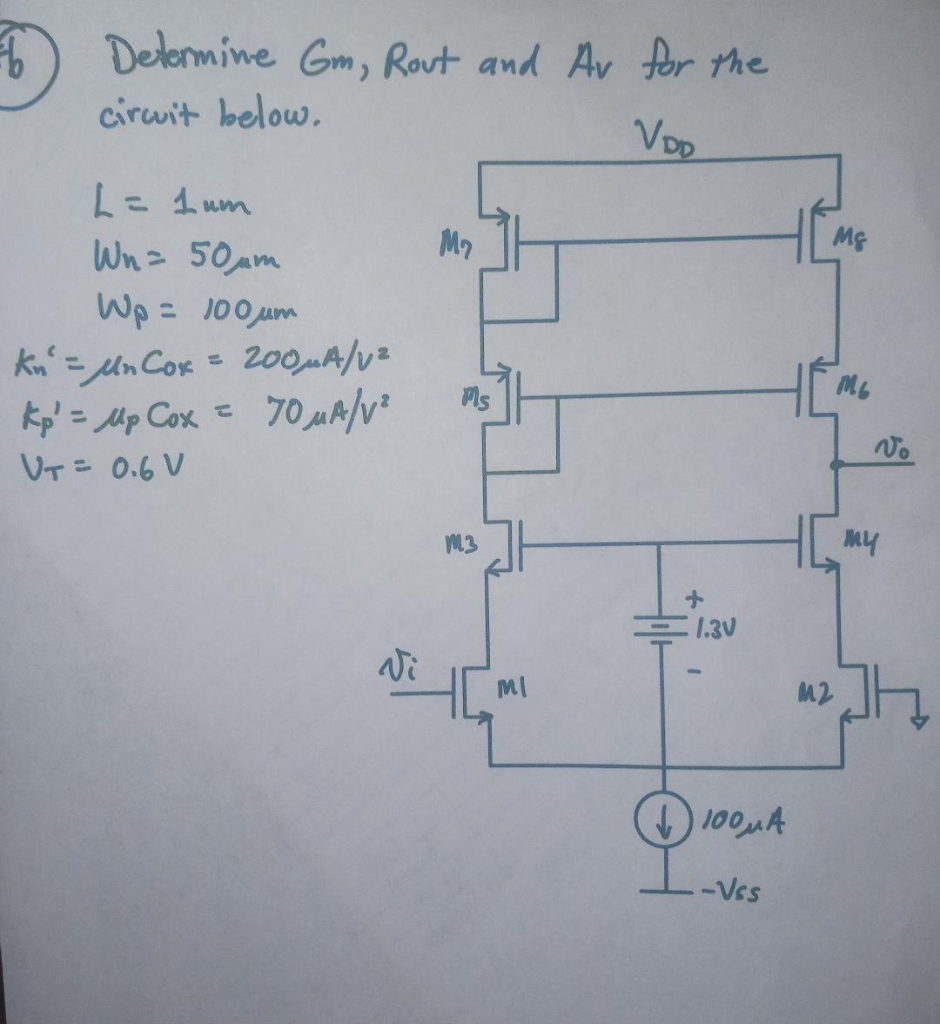 b) Determine Gm, Rout and Av for the
circuit below.
VDD
L = 1um
Wn = 50µm
Wp = 100µm
Kn' = µnCox = 200µA/V²
Kp' = µp Cox = 70µA/V²
VT = 0.6 V
M7
M8
M5
M6
vo
M3
M4
+
1.3V
-
vi
M1
M2
100µA
-Vss